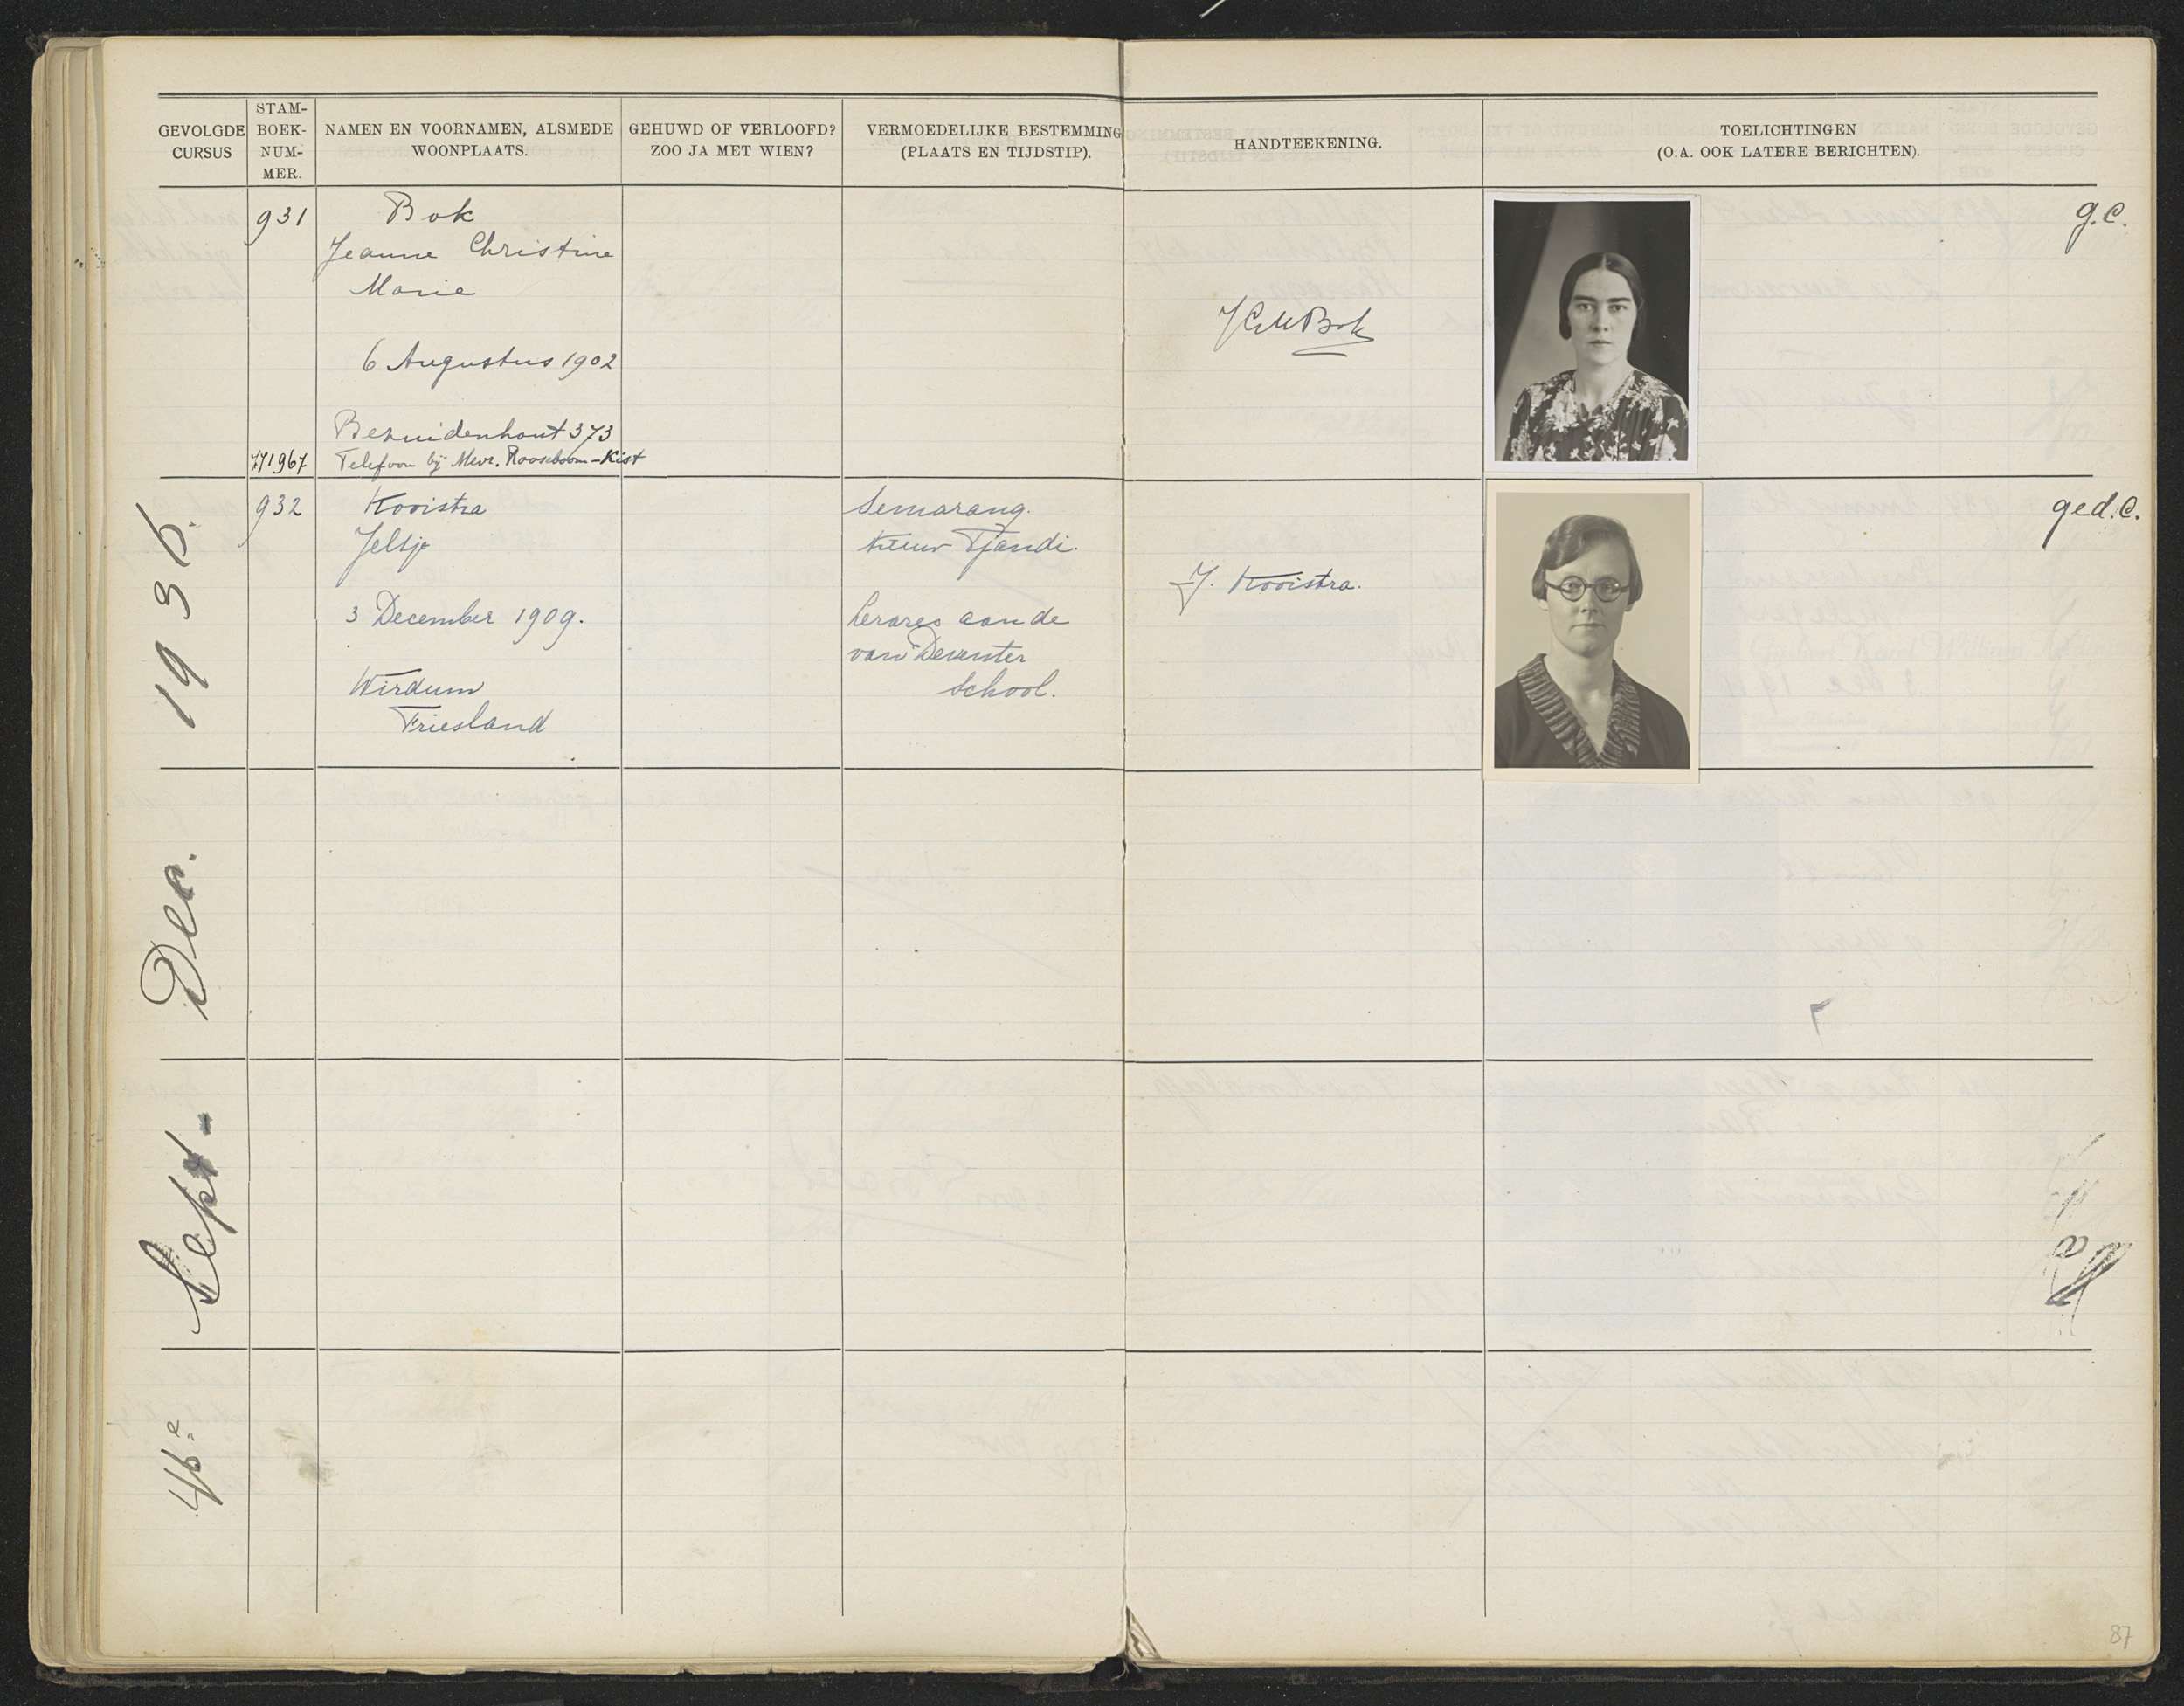 GEVOLGDE
CURSUS
STAM-
BOEK-
NUM-
MER.
NAMEN EN VOORNAMEN, ALSMEDE
WOONPLAATS.
GEHUWD OF VERLOOFD?
ZOO JA MET WIEN?
VERMOEDELIJKE BESTEMMING
(PLAATS EN TIJDSTIP).
HANDTEEKENING.
TOELICHTINGEN
(O.A. OOK LATERE BERICHTEN).
46e Sept. - Dec. 1936.
931
Bok
Jeanne Christine
Marie
6 Augustus 1902
Bezuidenhout 373
771967
Telefoon bij Mevr. Rooseboom-Kist
JCMBok
g.c.
932
Kooistra
Jeltje
3 December 1909.
Wirdum
Friesland
Semarang.
Nieuw Tjandi.
lerares aan de
van Deventer
School.
J. Kooistra.
ged. c.
87